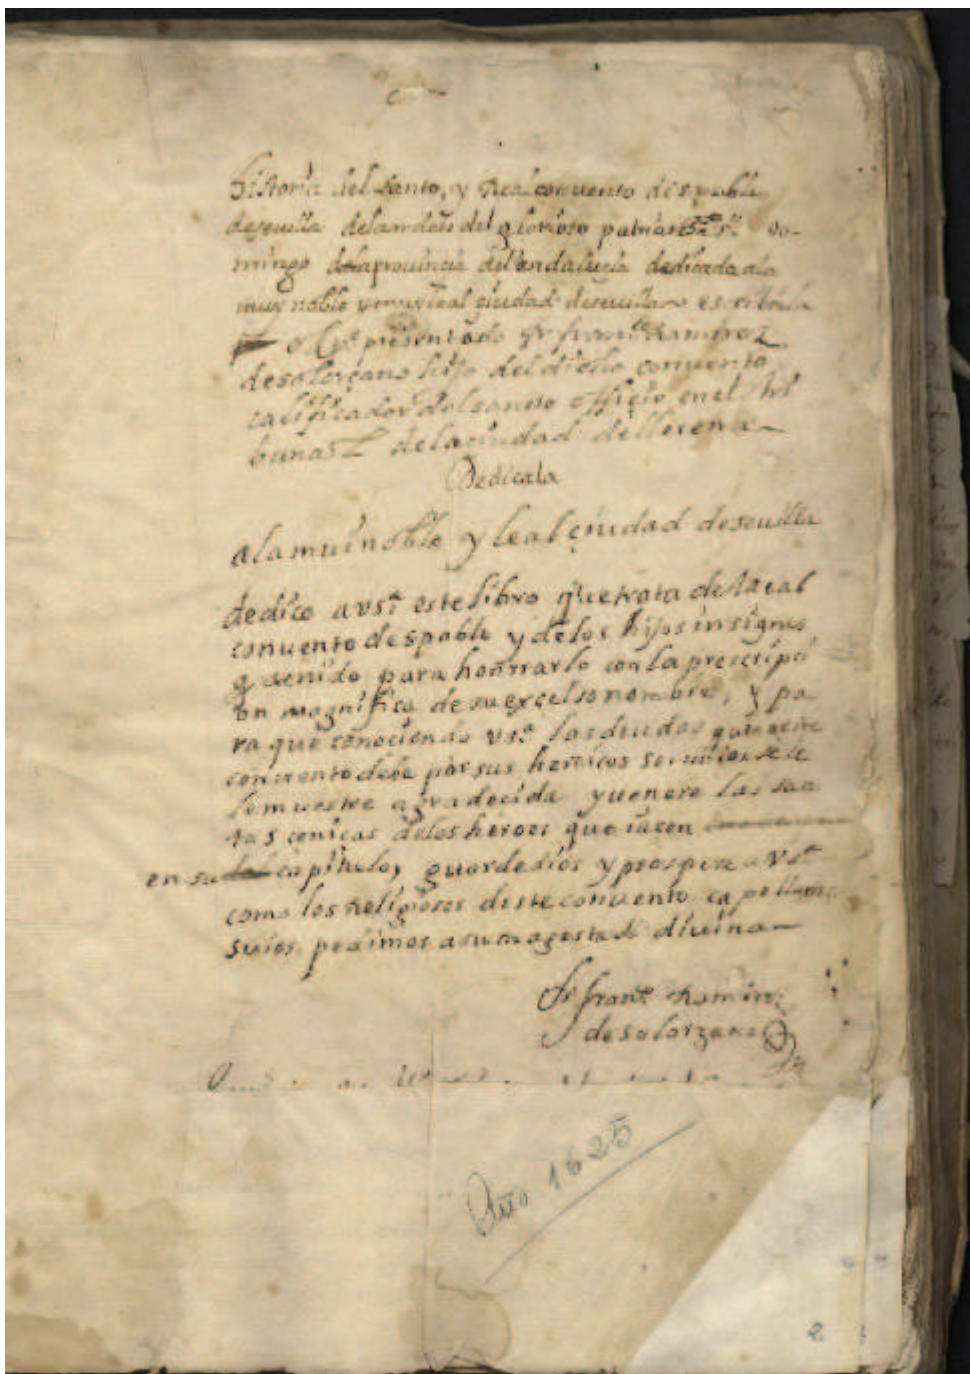 historia del santo, y Real convento de s pablo
de seuilla del orden del glorioso patriarcha sto do-
mingo de la provincia del andalucia dedicada a la
muy noble y muy leal ciudad de seuilla escritola
el pe presentado fr franco Ramirez
de solorçano hijo del dicho convento
calificador del santo officio en el tri
bunal de la ciudad de llerena
Dedicala
a la mui noble y leal çiudad de seuilla
dedico a vsa este libro que trata del Real
conuento de s pablo y de los hijos insignes
q a tenido para honrrarlo con la prescripçi
on magnifica de su excelso nombre, y pa
ra que conociendo vsa las deudas que a este
conuento debe por sus heroicos seruicios se le
muestre agradecida y uenere las san
tas cenicas de los heroes que iacen
en su capitulo, guarde dios y prospere a vsa
como los Religiosos deste conuento capellanes
suios pedimos a su magestad diuina
fr franco Ramirez
de solorzano
Año 1625
2